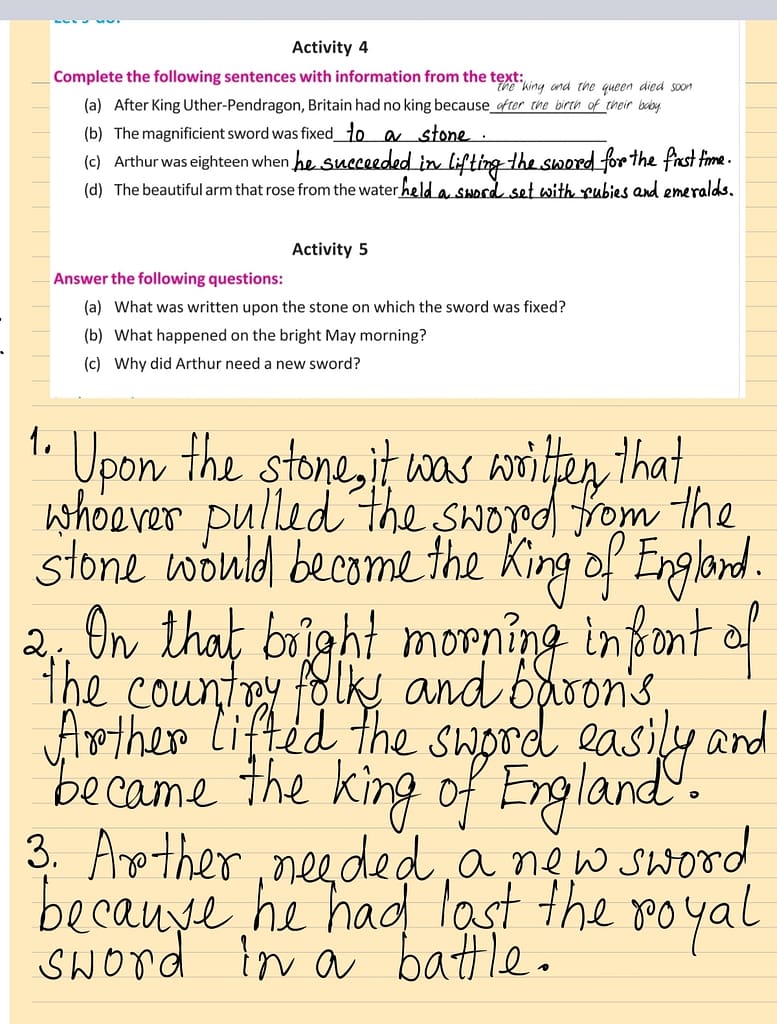 Activity 4
Complete the following sentences with information from the text:
the king and the queen died soon
(a) After King Uther-Pendragon, Britain had no king because after the birth of their baby
(b) The magnificient sword was fixed to a stone .
(c) Arthur was eighteen when he succeeded in lifting the sword for the first time.
(d) The beautiful arm that rose from the water held a sword set with rubies and emeralds.
Activity 5
Answer the following questions:
(a) What was written upon the stone on which the sword was fixed?
(b) What happened on the bright May morning?
(c) Why did Arthur need a new sword?
1. Upon the stone, it was written that
whoever pulled the sword from the
stone would become the King of England.
2. On that bright morning infront of
the country folks and barons
Arther lifted the sword easily and
became the king of England.
3. Arther needed a new sword
because he had lost the royal
sword in a battle.